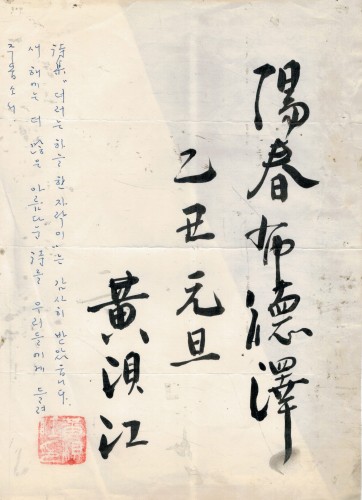 陽春布德澤
乙丑元旦
黃浿江
詩集, "더러는 하늘 한 자락이"는 감사히 받았습니다.
새해에는 더 많은 아름다운 詩를 우리들에게 들려
주옵소서.